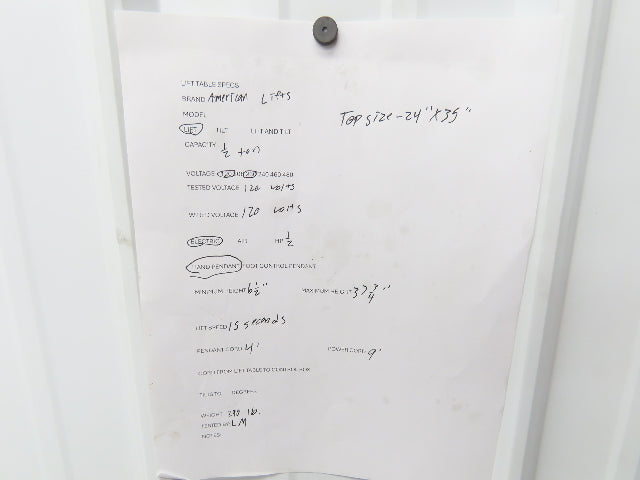 LIFT TABLE SPECS
BRAND American Lifts
MODEL
Top size - 24" x 35"
LIFT TILT LIFT AND TILT
CAPACITY 1/2 ton
VOLTAGE 120 208 240 460 480
TESTED VOLTAGE 120 volts
WIRED VOLTAGE 120 volts
ELECTRIC AIR HP 1/2
HAND PENDANT FOOT CONTROL PENDANT
MINIMUM HEIGHT 6 1/2" MAXIMUM HEIGHT 37 3/4"
LIFT SPEED 15 seconds
PENDANT CORD 4' POWER CORD 9'
CORD FROM LIFT TABLE TO CONTROL BOX
TILTS TO DEGREES
WEIGHT lb.
TESTED BY LM
NOTES